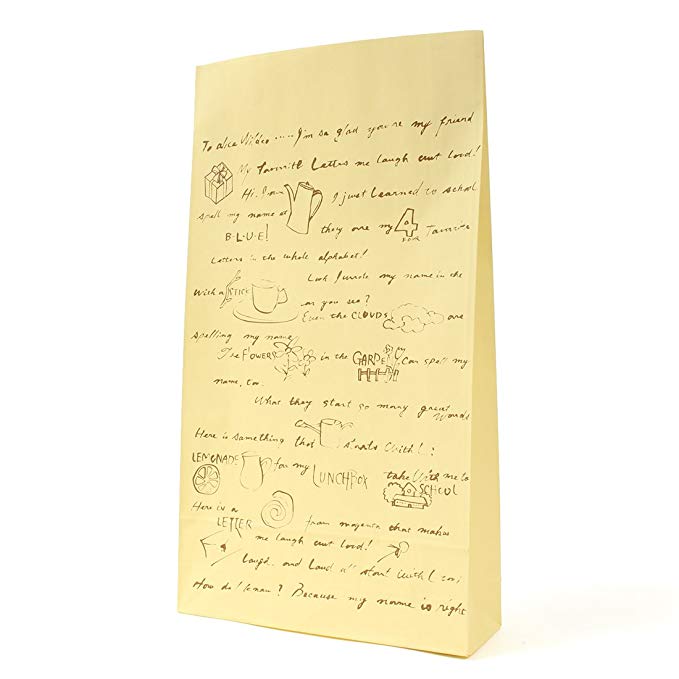 To alice Wilder..... I'm so glad you're my friend
My favorite Letters me laugh out loud!
Hi. I am I just Learned to school
spell my name at
B-L-U-E! they are my 4 FOUR Favorite
Letters in the whole alphabet!
Look I wrote my name in the
With a STICK
can you see?
Even the CLOUDS are
spelling my name
The FLOWERS in the GARDEN Can spell my
name, too.
What they start so many great
Words
Here is something that starts with L:
LEMONADE for my LUNCHBOX take With me to
SCHOOL
Here is a
LETTER from magenta that makes
me laugh out loud!
laugh.. and Loud all start with L too;
How do I know? Because my name is right